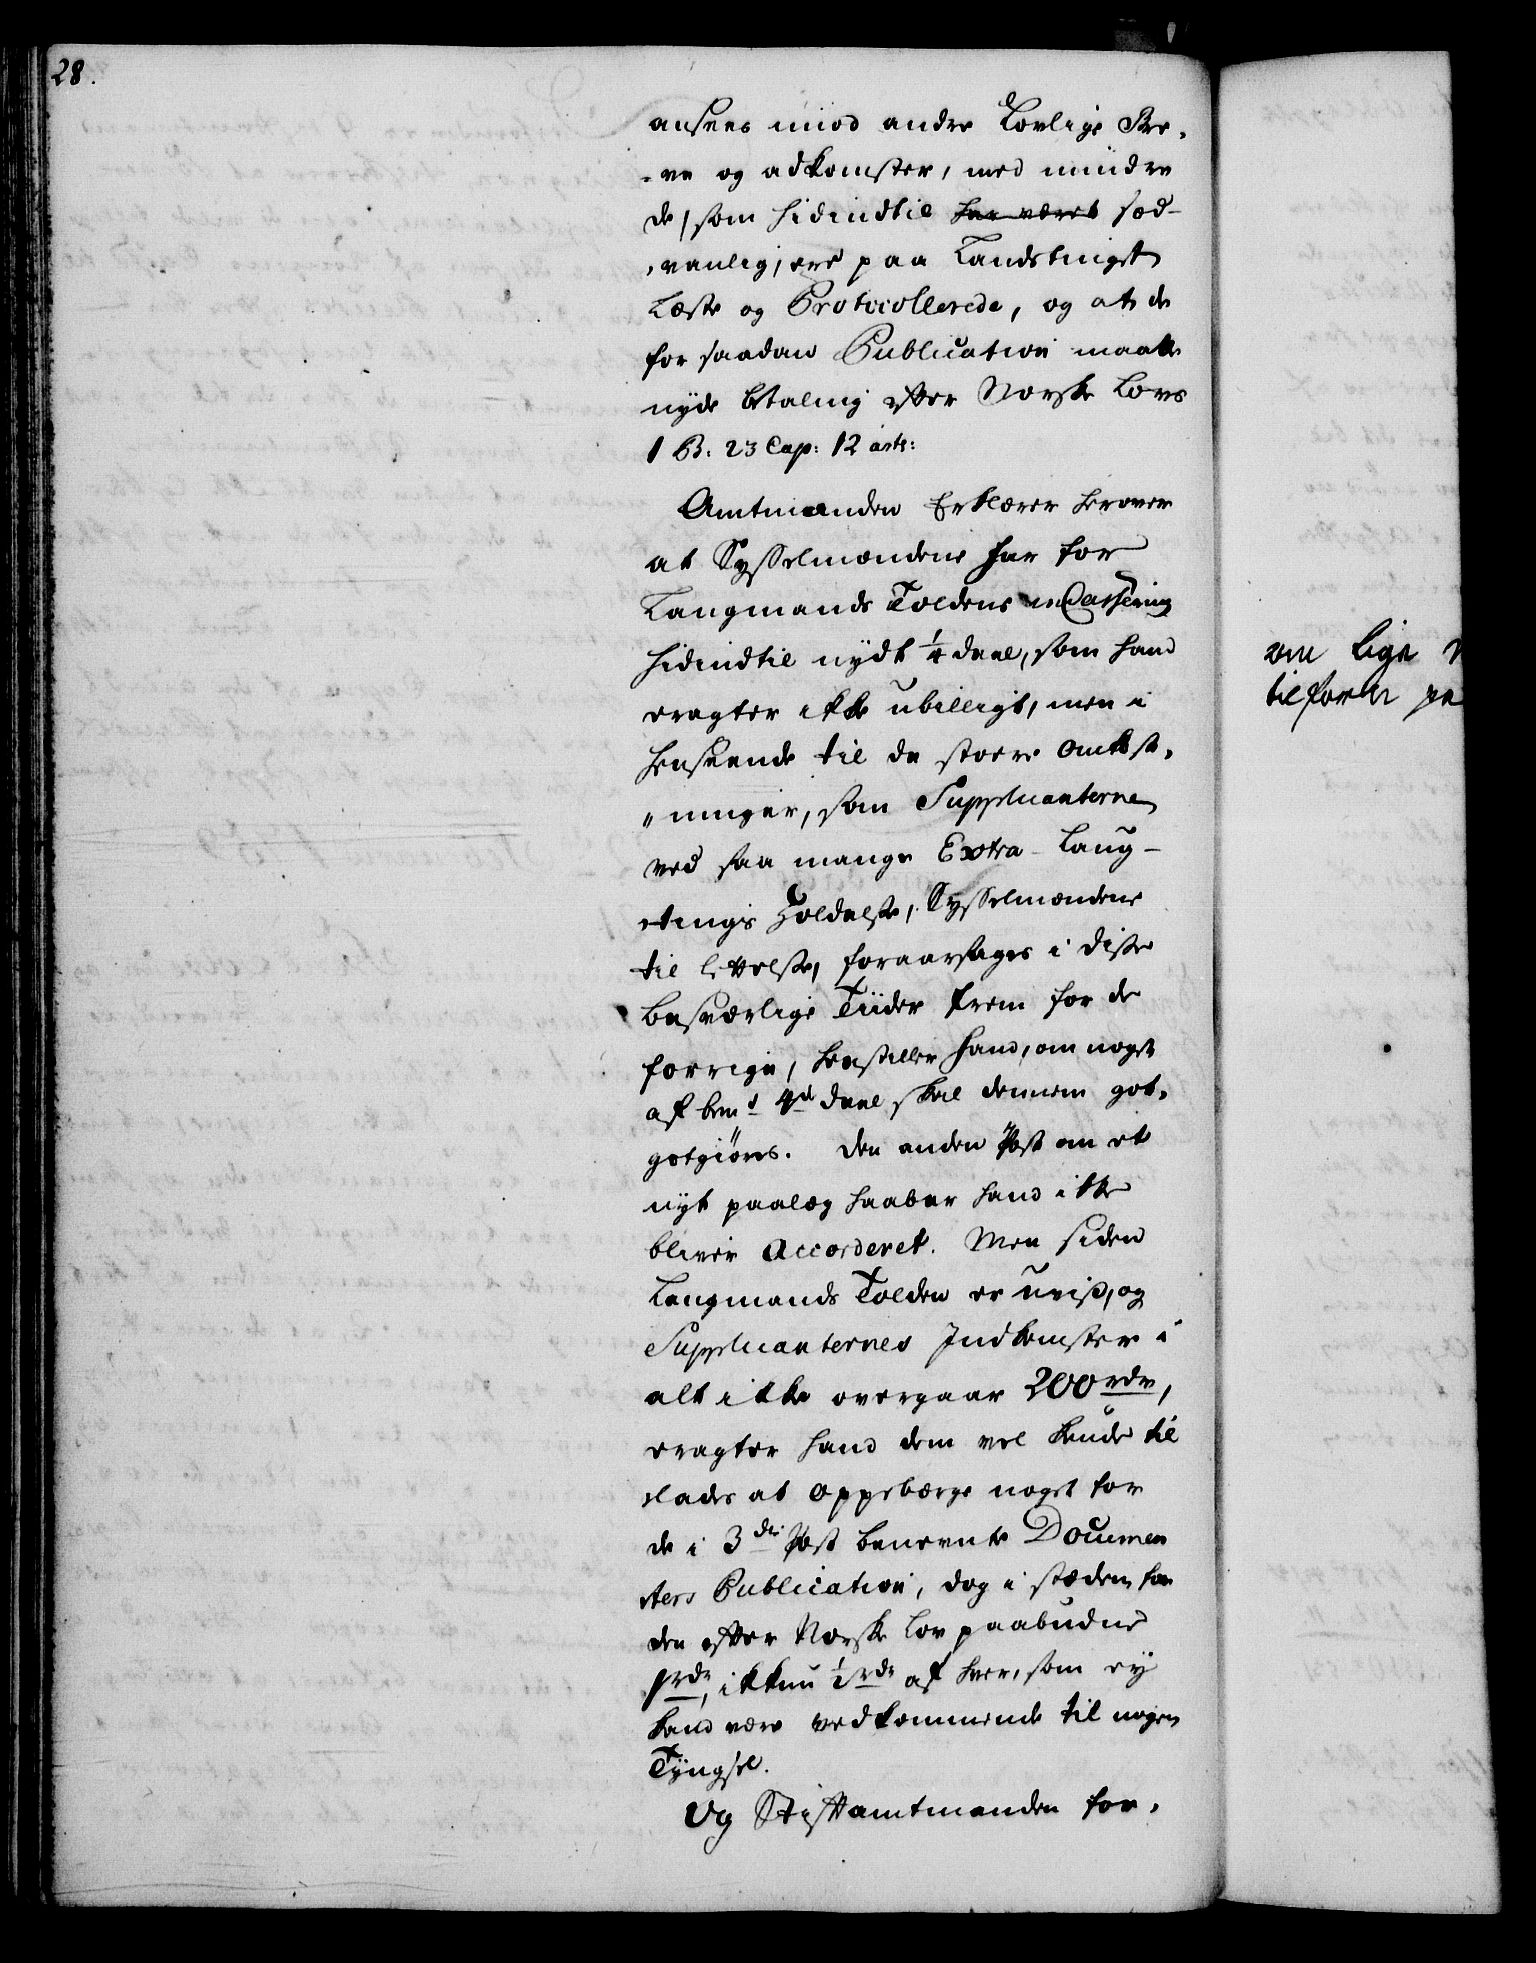 28.
ansees imod andre Lovlige Bre-
-ve og adkomster, med mindre
de, som hidindtil har været sæd-
vanlig, ere paa Landstinget
Læste og Protocollerede, og at de
for saadan Publication maatte
nyde betaling efter Norske Lovs
1 B: 23 Cap: 12 art:
Amtmanden Erklærer herover
at Sysselmændene har for
Laugmands Toldens inCassering
hidindtil nydt 1/4 deel, som hand
eragter ikke ubilligt, men i
henseende til de store omkost-
"ninger, som Supplicanterne
ved saa mange Extra-Laug-
tings Holdelse, Sysselmændene
til lettelse, foraarsages i disse
besværlige Tiider frem for de
forrige, henstiller hand, om noget
af bemte 4de deel skal dennem got-
gotgiøres. Den anden Post om et
nyt paalæg haaber hand ikke
bliver Accorderet. Men siden
Laugmands Tolden er uviss, og
Supplicanternes Indkomster i
alt ikke overgaar 200 rdr,
eragter hand dem vel kunde til
lades at oppebærge noget for
de i 3die Post benevnte Documen
ters Publication, dog i stæden for
den efter Norske Lov paabudne
1 rdr, ikkun 1/2 rdr af hver, som ey
kand være vedkommende til nogen
Tyngsel.
Og Stiftamtmanden for-
om lige
tilforn pa